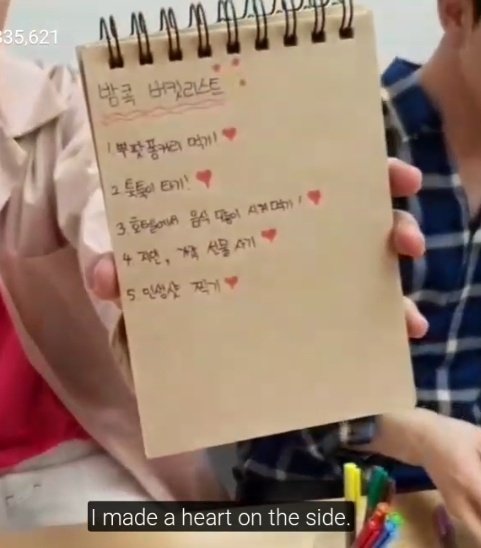 335,621
방콕 버킷리스트
1 뿌팟퐁커리 먹기!
2 툭툭이 타기!
3 호텔에서 음식 많이 시켜먹기!
4 지인, 가족 선물 사기
5 인생샷 찍기
I made a heart on the side.